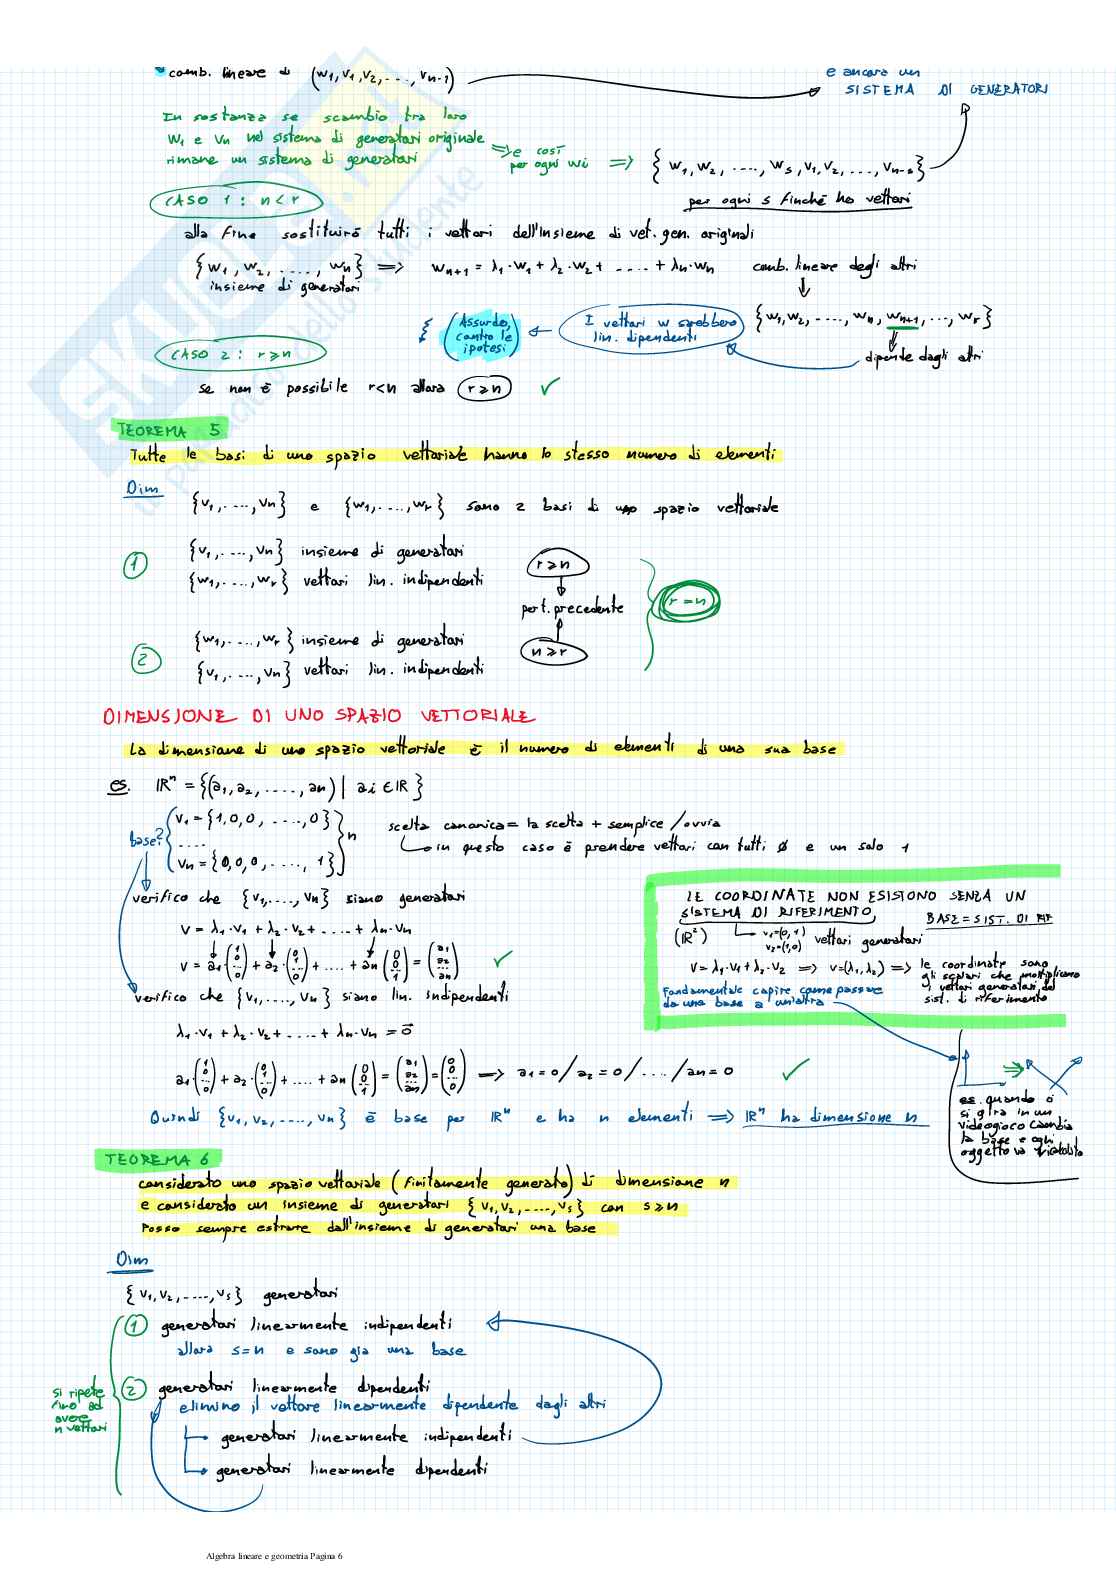 comb. lineare di (w1, v1, v2, ...., vn-1)
è ancora un
SISTEMA DI GENERATORI
In sostanza se scambio tra loro
w1 e vn nel sistema di generatori originale
rimane un sistema di generatori
=> e così
per ogni wi => {w1, w2, ...., ws, v1, v2, ..., vn-s}
per ogni s finché ho vettori
CASO 1: n<r
alla fine sostituirò tutti i vettori dell'insieme di vet. gen. originali
{w1, w2, ...., wn} => wn+1 = λ1·w1 + λ2·w2 + .... + λn·wn comb. lineare degli altri
insieme di generatori
{w1, w2, ...., wn, wn+1, ..., wr}
dipende dagli altri
I vettari w sarebbero
lin. dipendenti
Assurdo,
contro le
ipotesi
CASO 2: r⩾n
se non è possibile r<n allora r⩾n ✓
TEOREMA 5
Tutte le basi di uno spazio vettoriale hanno lo stesso numero di elementi
Dim
{v1, ...., vn} e {w1, ...., wr} sono 2 basi di uno spazio vettoriale
1 {v1, ...., vn} insieme di generatori
{w1, ...., wr} vettori lin. indipendenti
r⩾n
per t. precedente
r=n
2 {w1, ...., wr} insieme di generatori
{v1, ...., vn} vettori lin. indipendenti
n⩾r
DIMENSIONE DI UNO SPAZIO VETTORIALE
La dimensione di uno spazio vettoriale è il numero di elementi di una sua base
es. ℝⁿ = {(a1, a2, ...., an) | ai ∈ ℝ}
base? v1 = {1,0,0, ...., 0}
....
vn = {0,0,0, ...., 1} n
scelta canonica = la scelta + semplice / ovvia
in questo caso è prendere vettori con tutti 0 e un solo 1
verifico che {v1, ...., vn} siano generatori
v = λ1·v1 + λ2·v2 + .... + λn·vn
v = a1·(1 0 ... 0) + a2·(0 1 ... 0) + .... + an(0 0 ... 1) = (a1 a2 ... an) ✓
verifico che {v1, ...., vn} siano lin. indipendenti
λ1·v1 + λ2·v2 + .... + λn·vn = 0⃗
a1·(1 0 ... 0) + a2·(0 1 ... 0) + .... + an(0 0 ... 1) = (a1 a2 ... an) = (0 0 ... 0) => a1=0 / a2=0 / .... / an=0 ✓
Quindi {v1, v2, ...., vn} è base per ℝⁿ e ha n elementi => ℝⁿ ha dimensione n
LE COORDINATE NON ESISTONO SENZA UN
SISTEMA DI RIFERIMENTO
BASE = SIST. DI RIF
(ℝ²) v1=(0,1)
v2=(1,0) vettori generatori
v = λ1·v1 + λ2·v2 => v=(λ1,λ2) => le coordinate sono
gli scalari che moltiplicano
i vettori generatori del
sist. di riferimento
Fondamentale capire come passare
da una base a un'altra
es. quando ci
si gira in un
videogioco cambia
la base e ogni
oggetto va ricalcolato
TEOREMA 6
considerato uno spazio vettoriale (finitamente generato) di dimensione n
e considerato un insieme di generatori {v1, v2, ...., vs} con s⩾n
Posso sempre estrarre dall'insieme di generatori una base
Dim
{v1, v2, ...., vs} generatori
1 generatori linearmente indipendenti
allora s=n e sono già una base
2 generatori linearmente dipendenti
elimino il vettore linearmente dipendente dagli altri
generatori linearmente indipendenti
generatori linearmente dipendenti
si ripete
fino ad
avere
n vettori
Algebra lineare e geometria Pagina 6